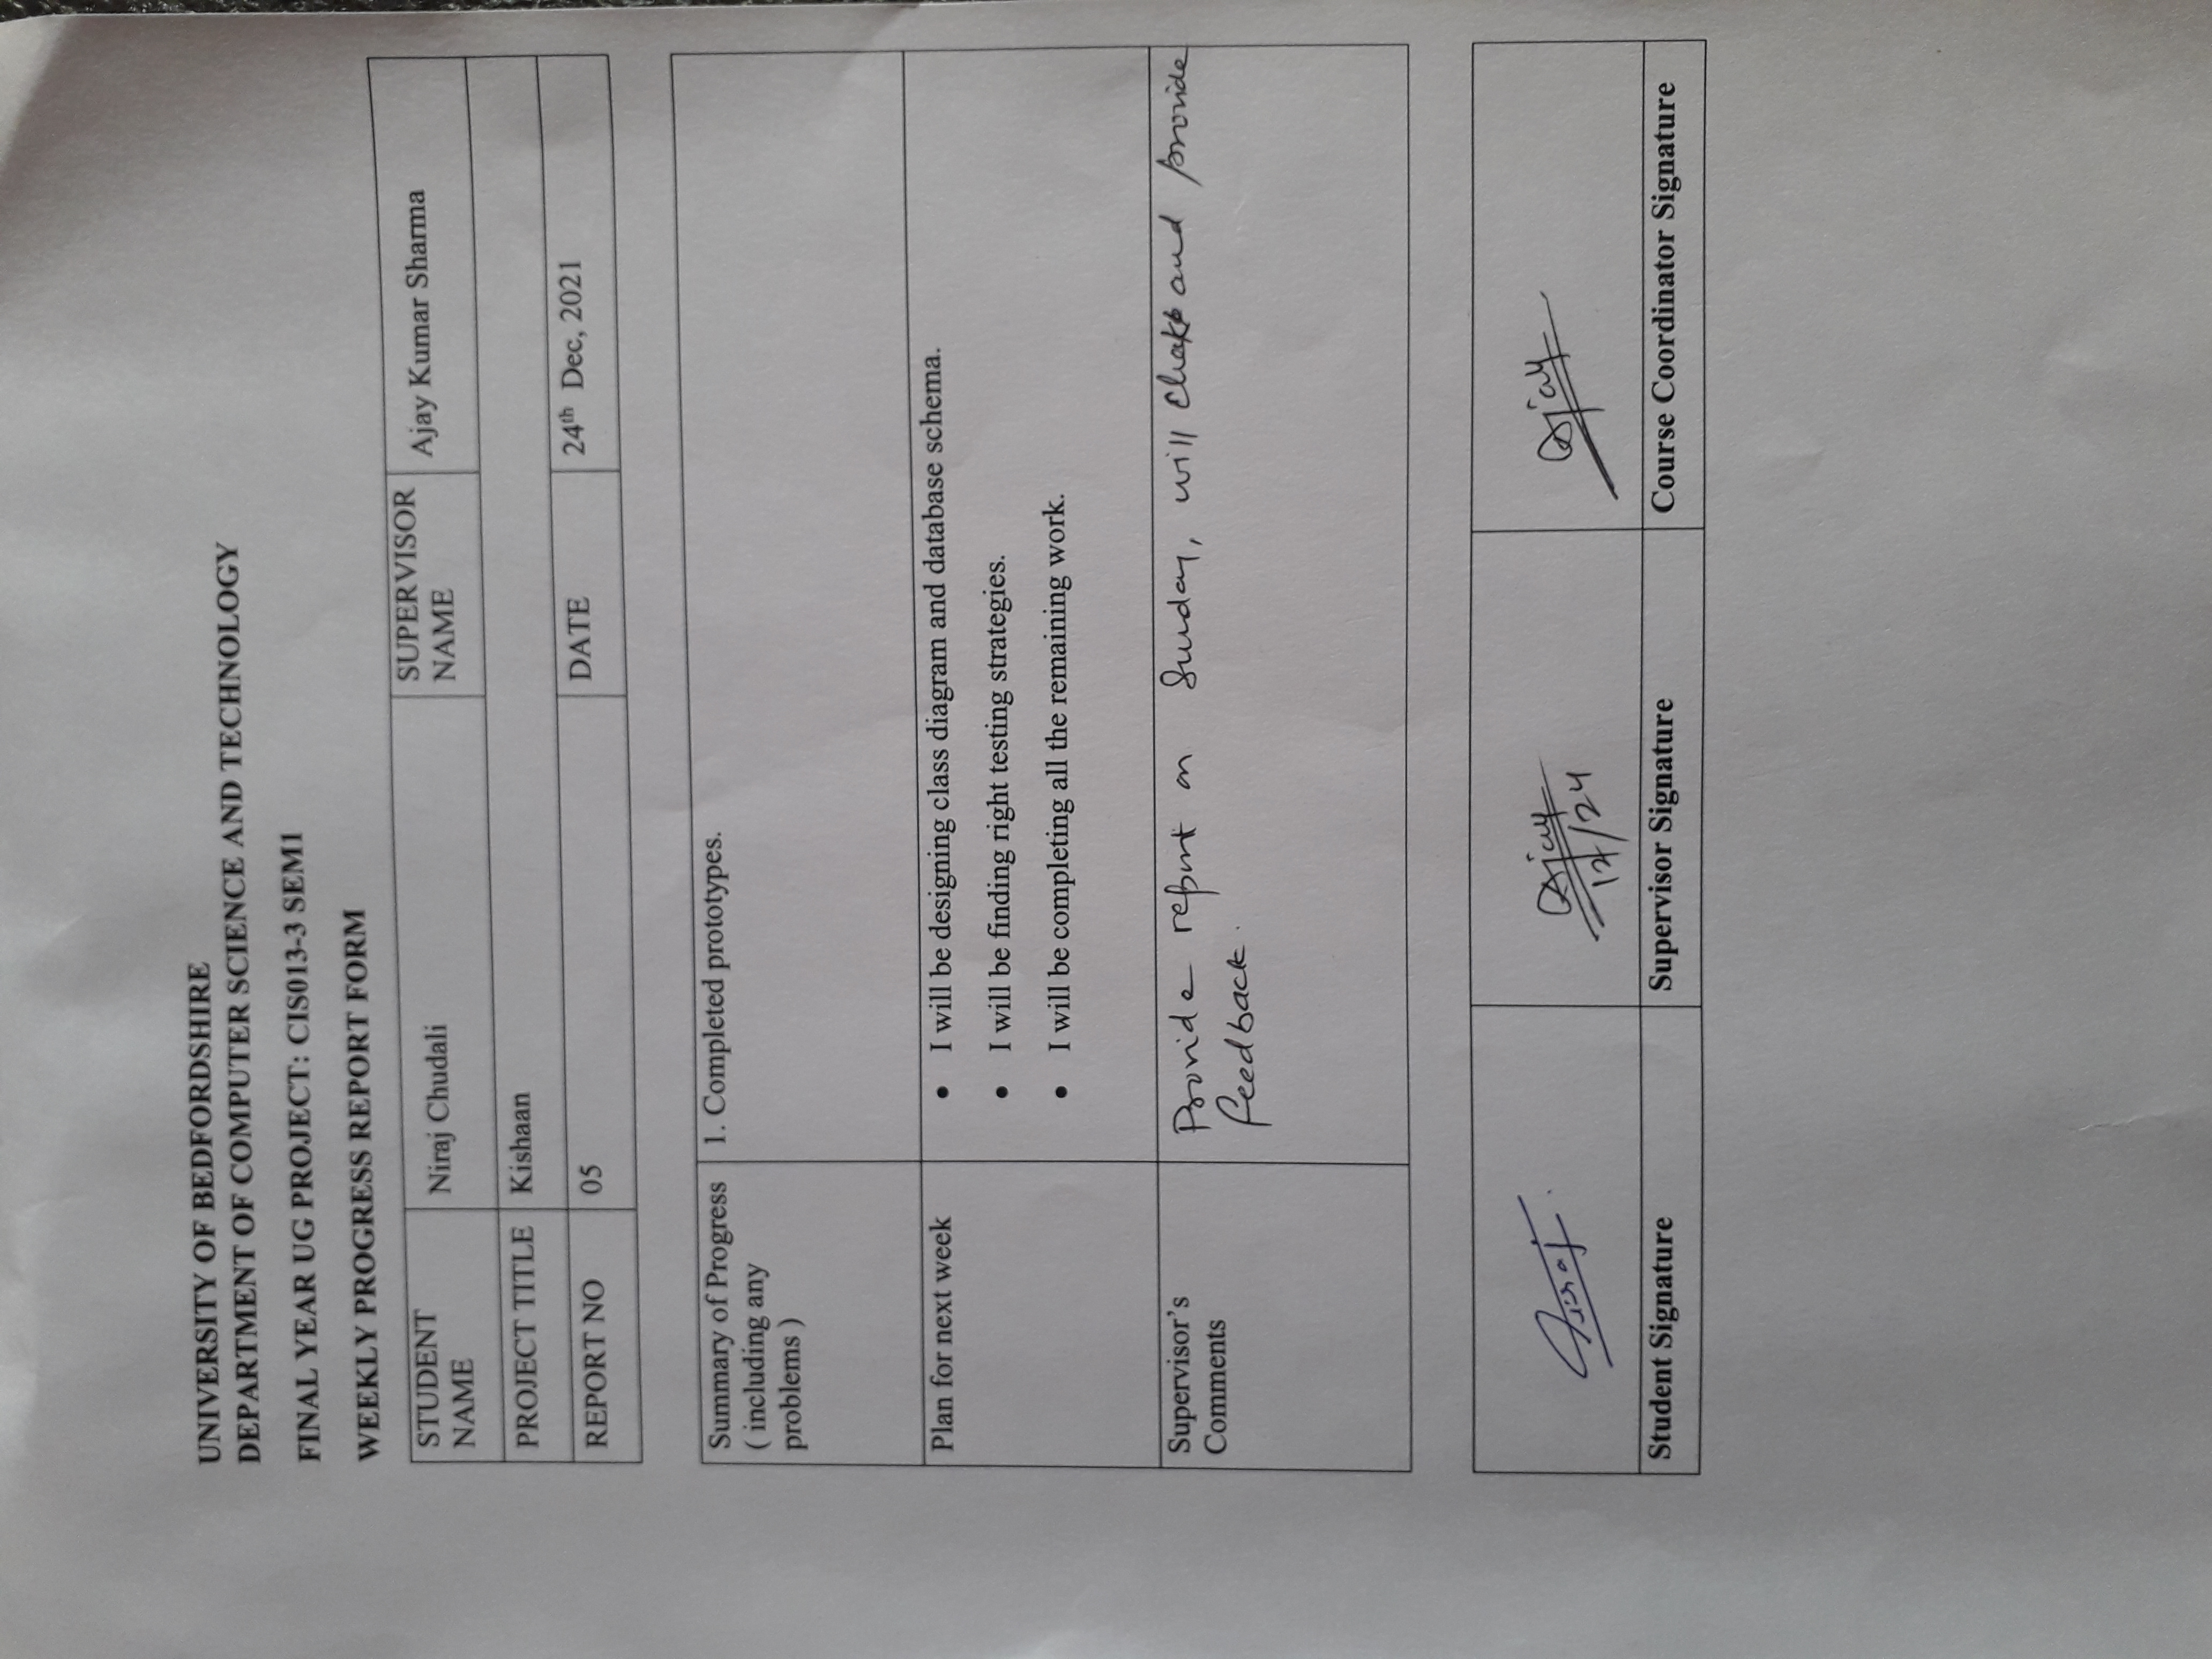 UNIVERSITY OF BEDFORDSHIRE
DEPARTMENT OF COMPUTER SCIENCE AND TECHNOLOGY
FINAL YEAR UG PROJECT: CIS013-3 SEM1
WEEKLY PROGRESS REPORT FORM
STUDENT
NAME
Niraj Chudali
SUPERVISOR
NAME
Ajay Kumar Sharma
PROJECT TITLE
Kishaan
REPORT NO
05
DATE
24th Dec, 2021
Summary of Progress
( including any
problems )
1. Completed prototypes.
Plan for next week
• I will be designing class diagram and database schema.
• I will be finding right testing strategies.
• I will be completing all the remaining work.
Supervisor's
Comments
Provide report on Sunday, will and provide
feedback.
Niraj
Ajay
12/24
Ajay
Student Signature
Supervisor Signature
Course Coordinator Signature